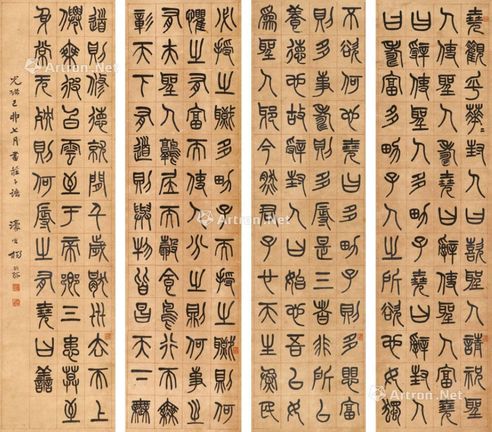 堯觀乎華〻封人曰嘻聖人請祝聖
人使聖人壽堯曰辭使聖人富堯
曰辭使聖人多男子堯曰辭封人
曰壽富多男子人之所欲也女獨
不欲何邪堯曰多男子則多懼富
則多事壽則多辱是三者非所以
養德也故辭封人曰始也吾以女
為聖人邪今然君子也天生萬民
必授之職多男子而授之職則何
懼之有富而使人分之則何事之
有夫聖人鶉居而鷇食鳥行而無
彰天下有道則與物皆昌天下無
道則修德就閒千歲厭世去而上
僊乘彼白雲至于帝鄉三患莫至
身常无殃則何辱之有堯曰善
光緒己卯七月書莊子語 濠叟楊沂孫
Artron.Net
Artron.Net
Artron.Net
Artron.Net